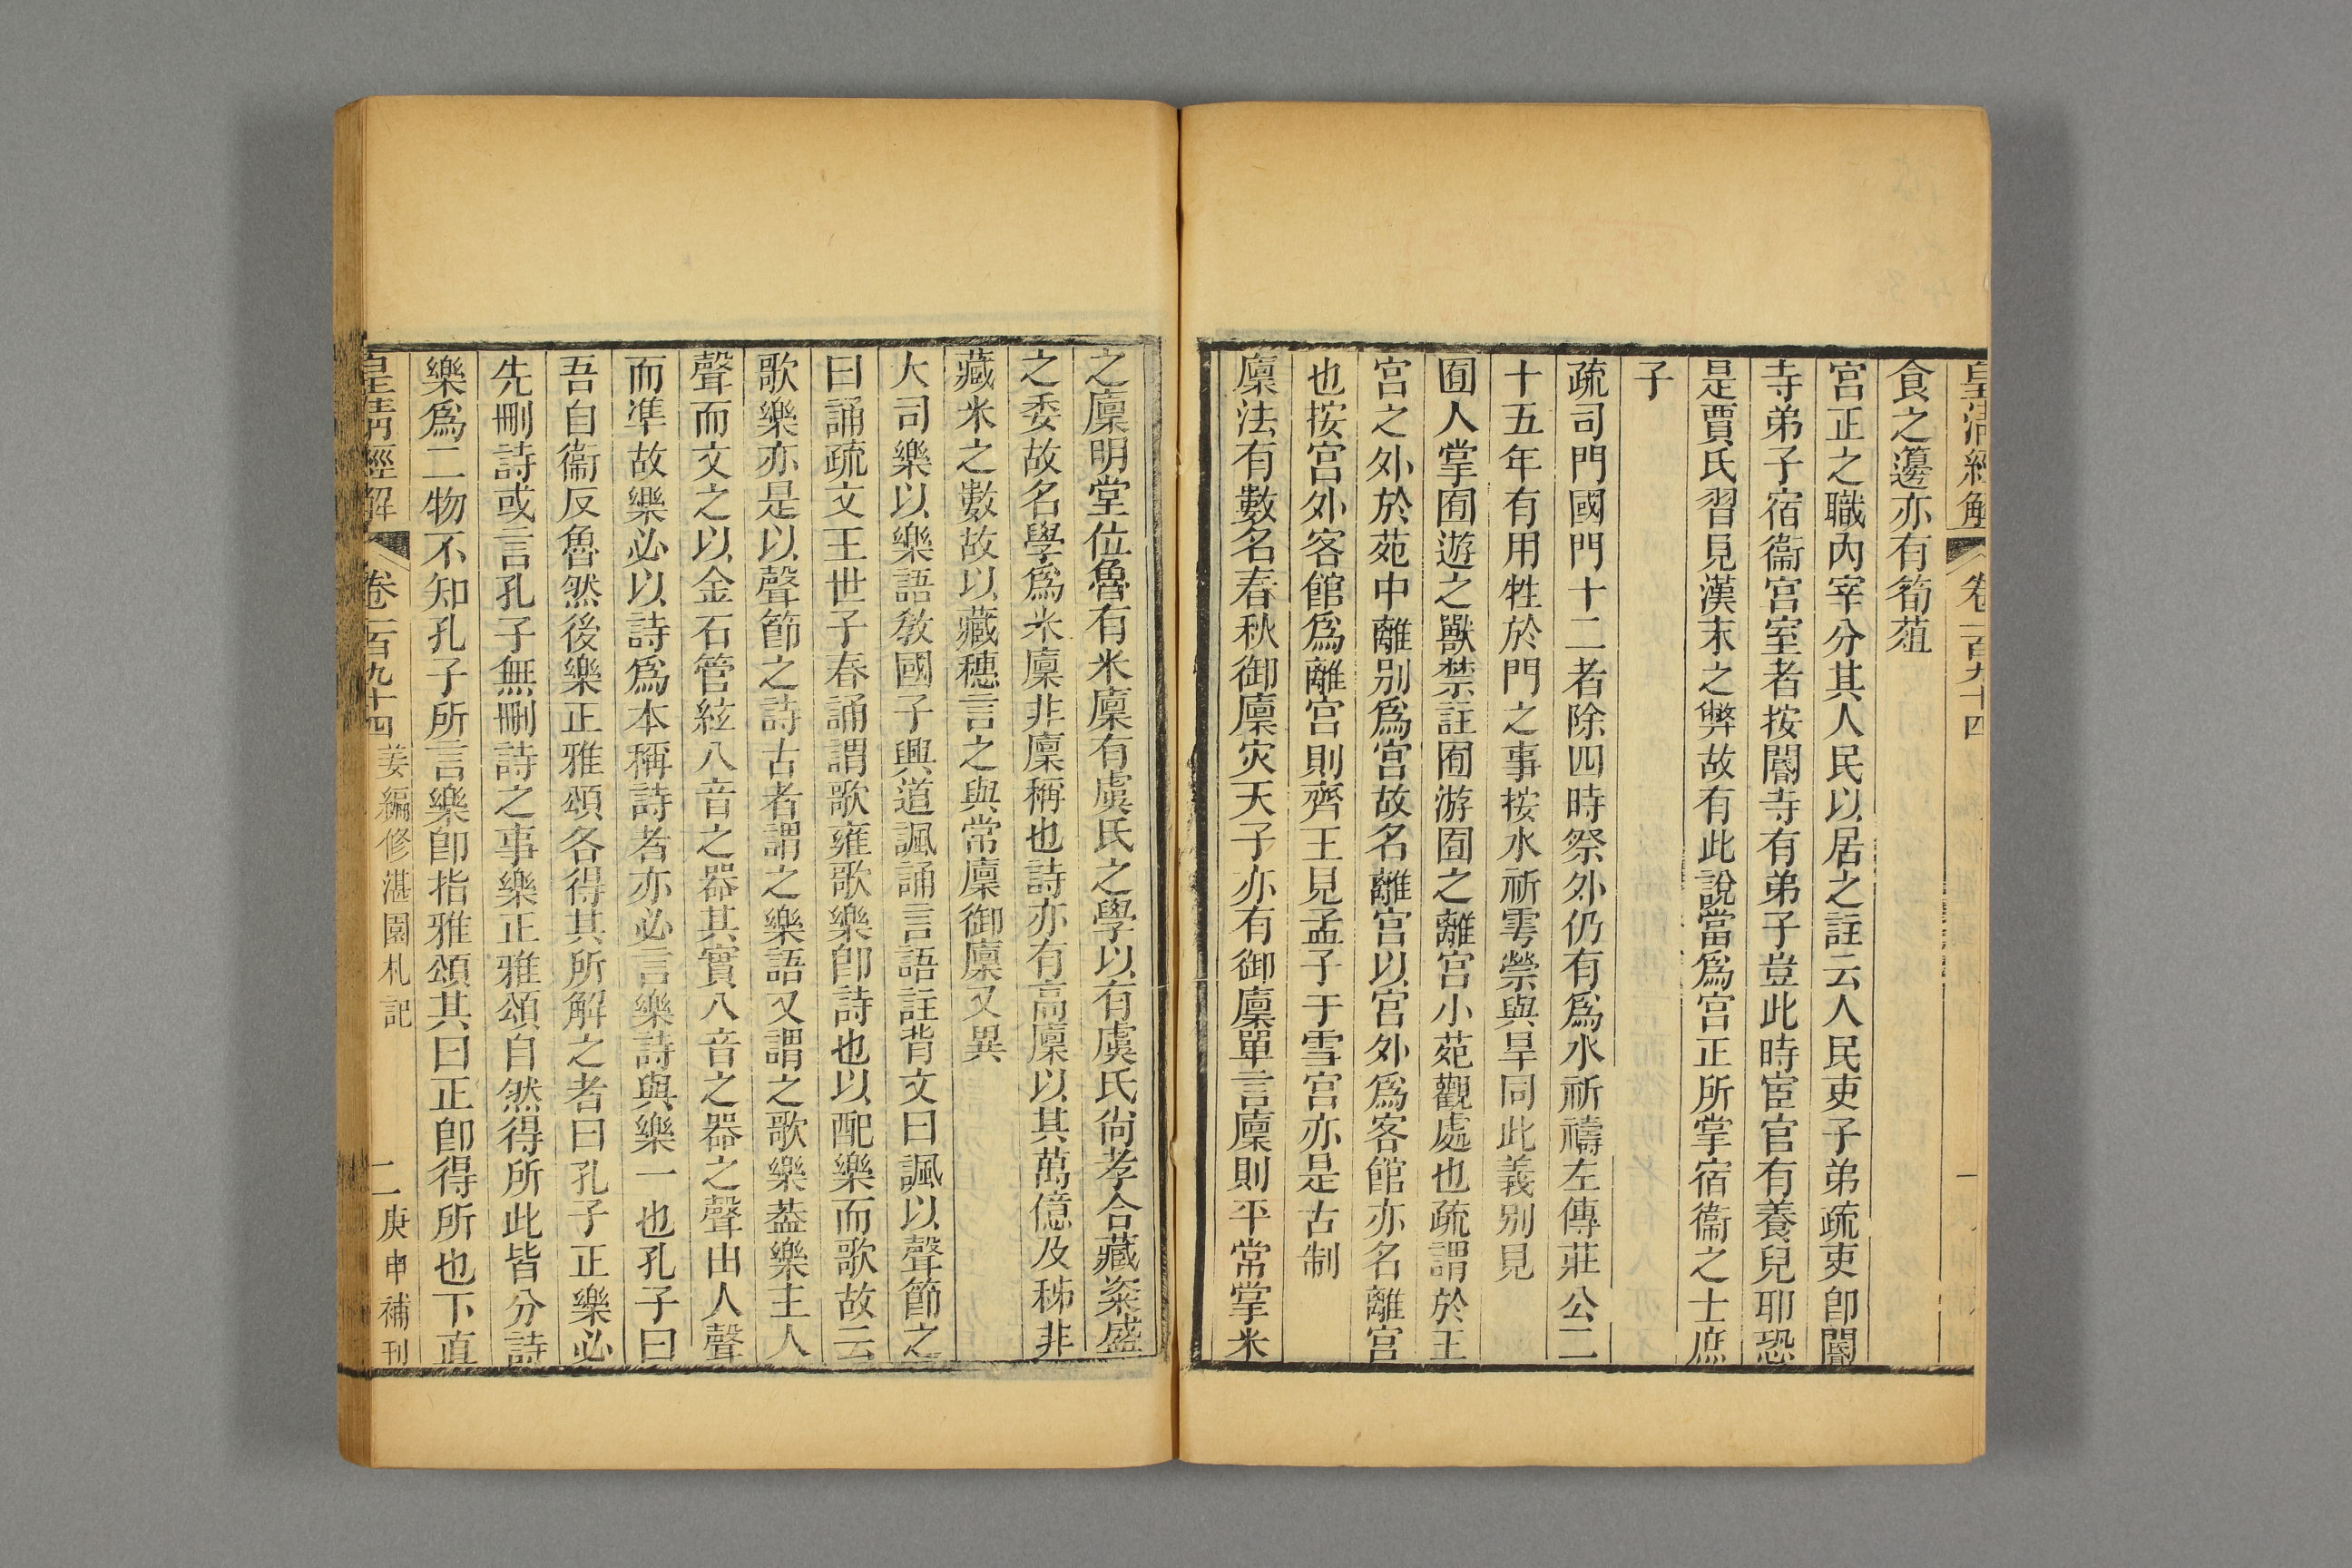 皇清經解 卷一百九十四 一
食之籩亦有筍菹
宮正之職內宰分其人民以居之註云人民吏子弟疏吏卽閽
寺弟子宿衞宮室者按閽寺有弟子豈此時宦官有養兒耶恐
是賈氏習見漢末之弊故有此說當爲宮正所掌宿衞之士庶
子
疏司門國門十二者除四時祭外仍有爲水祈禱左傳莊公二
十五年有用牲於門之事按水祈雩禜與旱同此義别見
囿人掌囿遊之獸禁註囿游囿之離宮小苑觀處也疏謂於王
宮之外於苑中離别爲宮故名離宮以宮外爲客館亦名離宮
也按宮外客館爲離宮則齊王見孟子于雪宮亦是古制
廩法有數名春秋御廩灾天子亦有御廩單言廩則平常掌米
之廩明堂位魯有米廩有虞氏之學以有虞氏尙孝合藏粢盛
之委故名學爲米廩非廩稱也詩亦有高廩以其萬億及秭非
藏米之數故以藏穗言之與常廩御廩又異
大司樂以樂語敎國子興道諷誦言語註背文曰諷以聲節之
曰誦疏文王世子春誦謂歌雍歌樂卽詩也以配樂而歌故云
歌樂亦是以聲節之詩古者謂之樂語又謂之歌樂葢樂主人
聲而文之以金石管絃八音之器其實八音之器之聲由人聲
而準故樂必以詩爲本稱詩者亦必言樂詩與樂一也孔子曰
吾自衞反魯然後樂正雅頌各得其所解之者曰孔子正樂必
先刪詩或言孔子無刪詩之事樂正雅頌自然得所此皆分詩
樂爲二物不知孔子所言樂卽指雅頌其曰正卽得所也下直
皇淸經解 卷一百九十四 姜編修湛園札記 二 庚申補刊